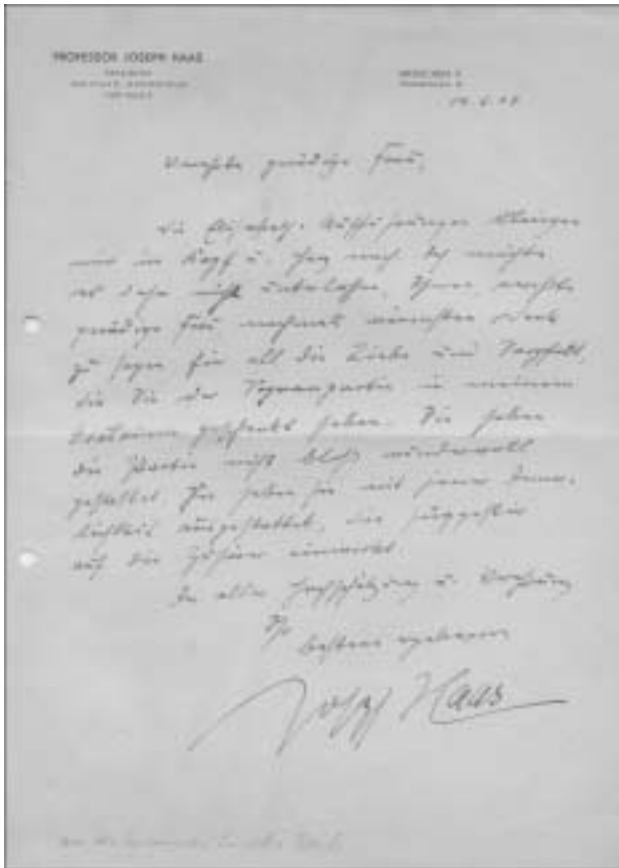 PROFESSOR JOSEPH HAAS
MÜNCHEN
Verehrte gnädige Frau,
Die Elisabeth-Aufführungen klingen
mir in Kopf u. Herz nach. Ich möchte
es daher nicht unterlassen, Ihnen, verehrte
gnädige Frau nochmals Dank
zu sagen für all die Liebe und Sorgfalt,
die Sie der Sopranpartie in meinem
Oratorium geschenkt haben. Sie haben
die Partie nicht bloß wundervoll
gestaltet, Sie haben sie mit jener Inner-
lichkeit ausgestattet, die suggestiv
auf die Zuhörer einwirkt.
In aller Hochschätzung u. Verehrung
Ihr
bestens ergebener
Joseph Haas